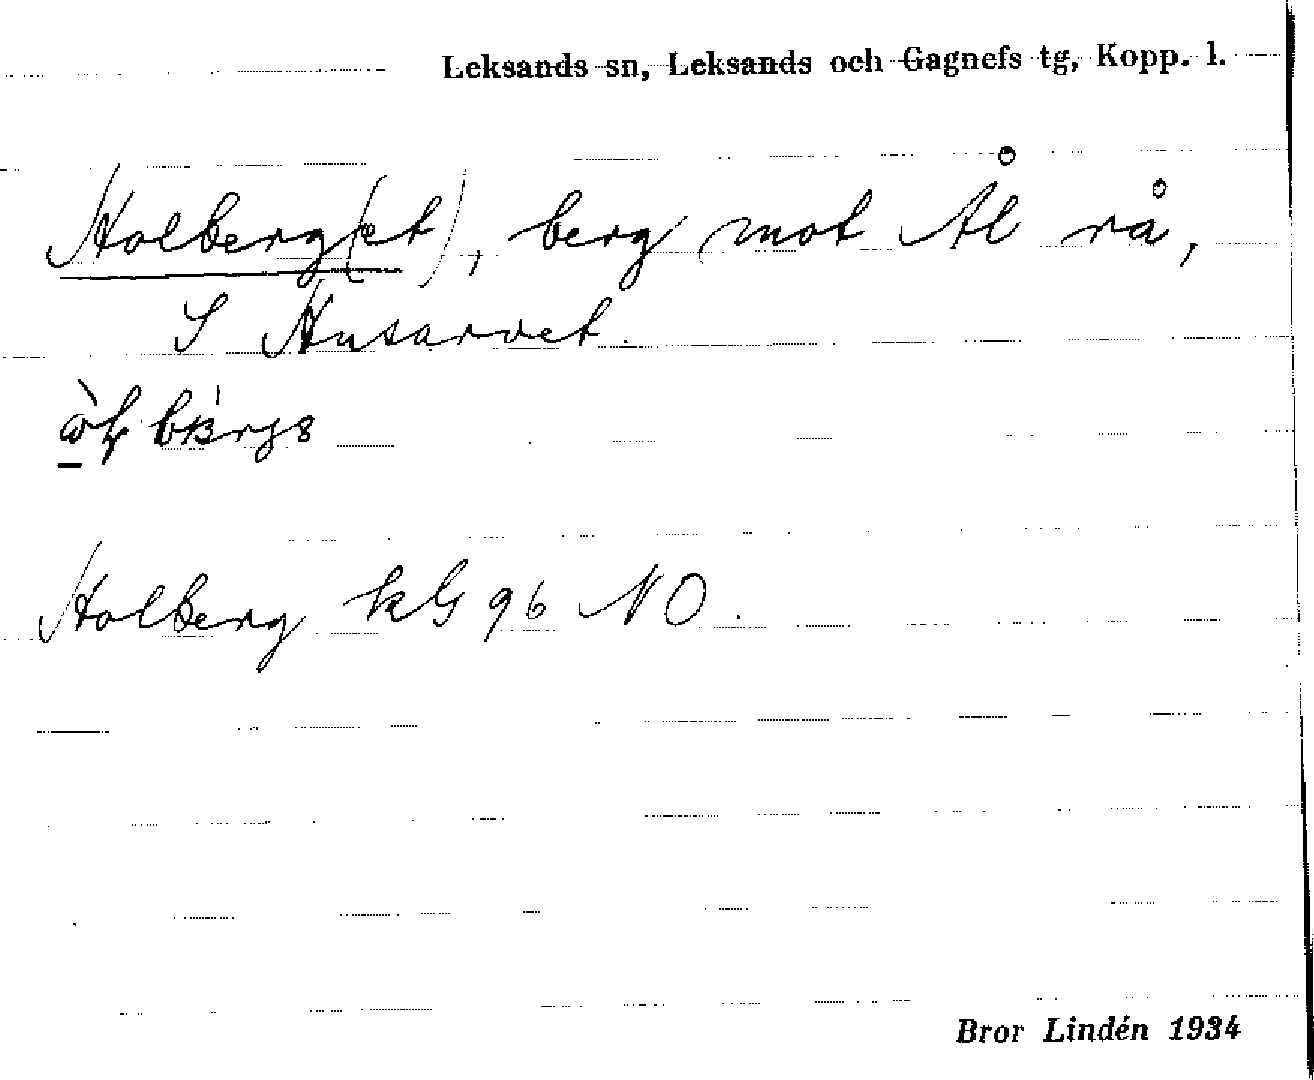 Leksands sn, Leksands och Gagnefs tg, Kopp. l.
Holberg(et), berg mot Ål rå,
S Husarvet.
Holberg kG 96 NO.
Bror Lindén 1934